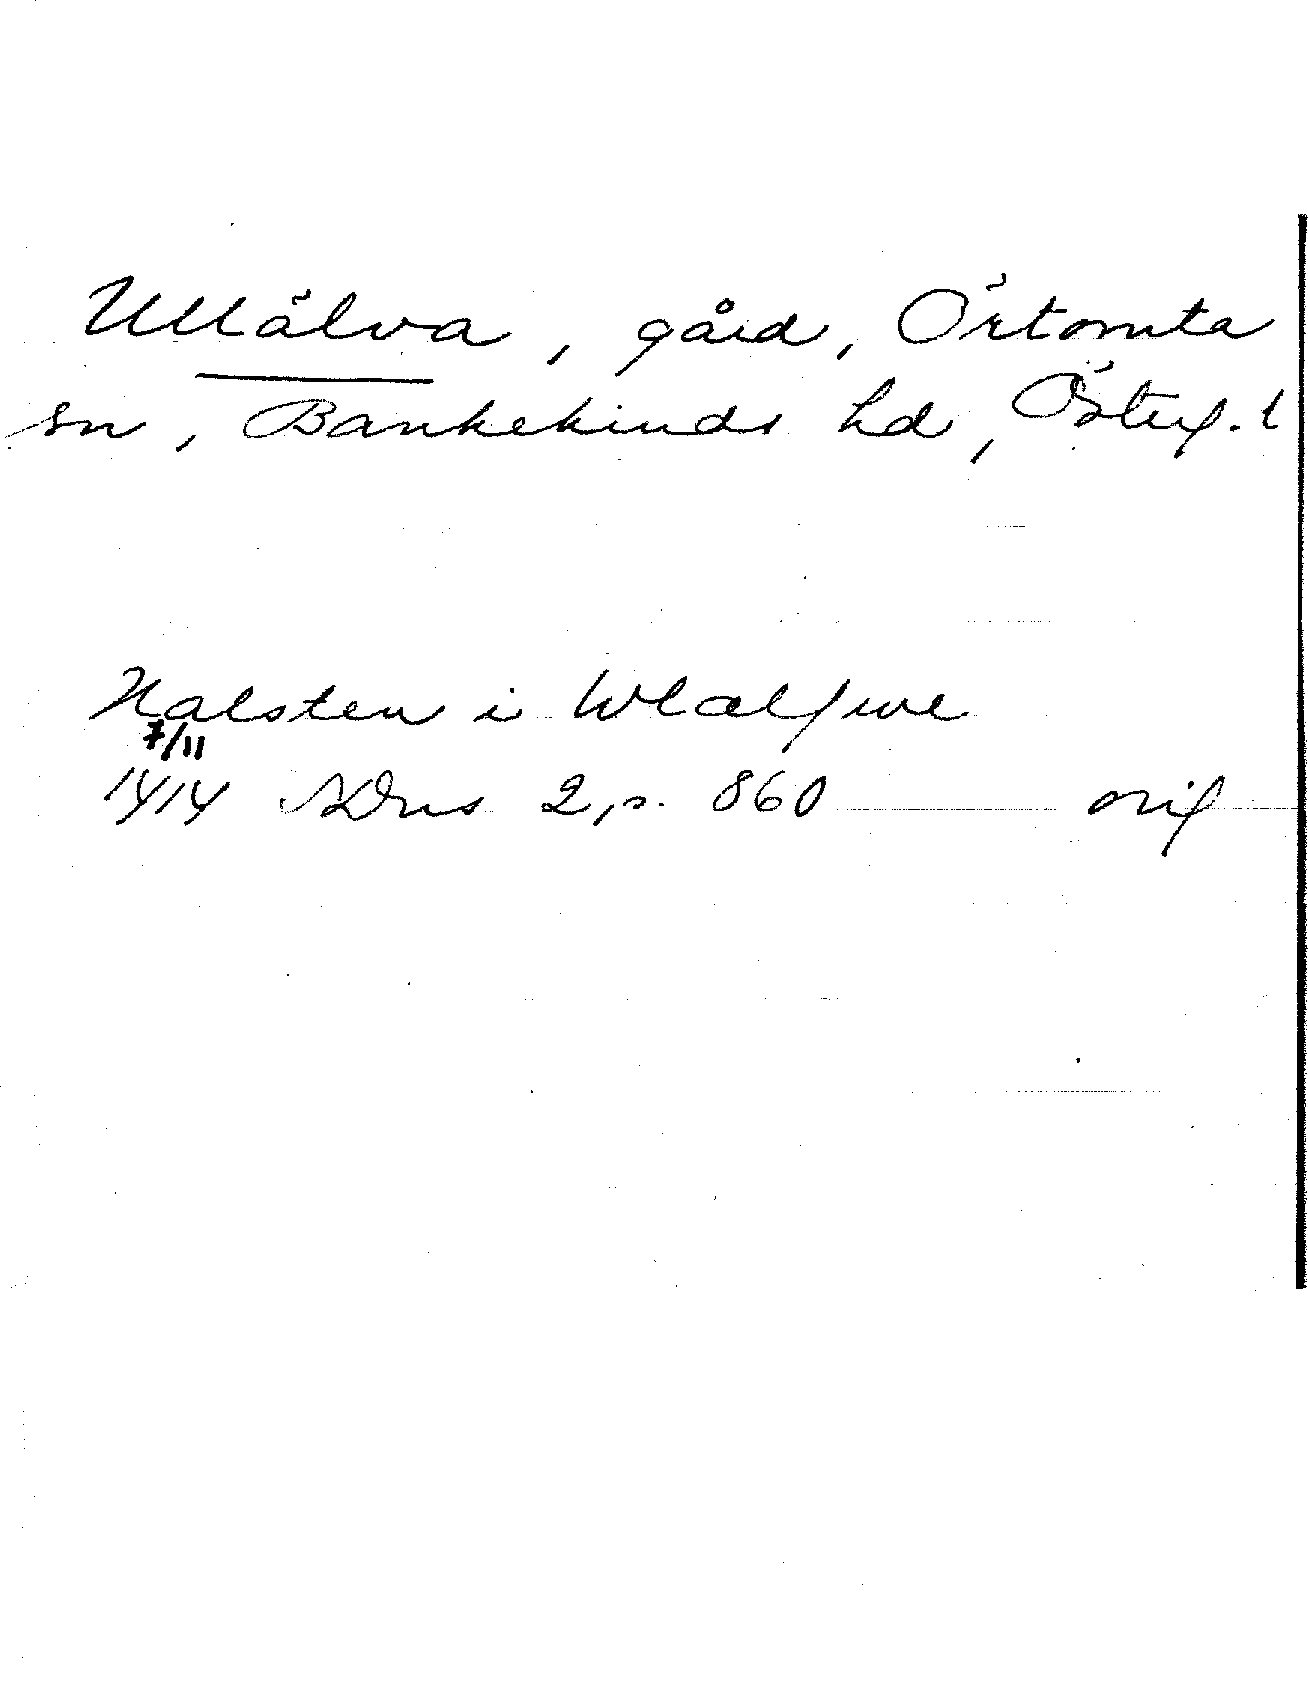 Ullälva, gård, Örtomta
sn, Bankekinds hd, Österg. l
Halsten i Wlælfwe
7/11
1414 SDns 2, s. 860 orig